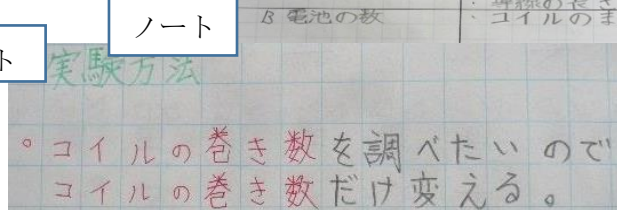 ノート
B 電池の数
・導線の長さ
・コイルのま
ト
実験方法
°コイルの巻き数を調べたいので
コイルの巻き数だけ変える。